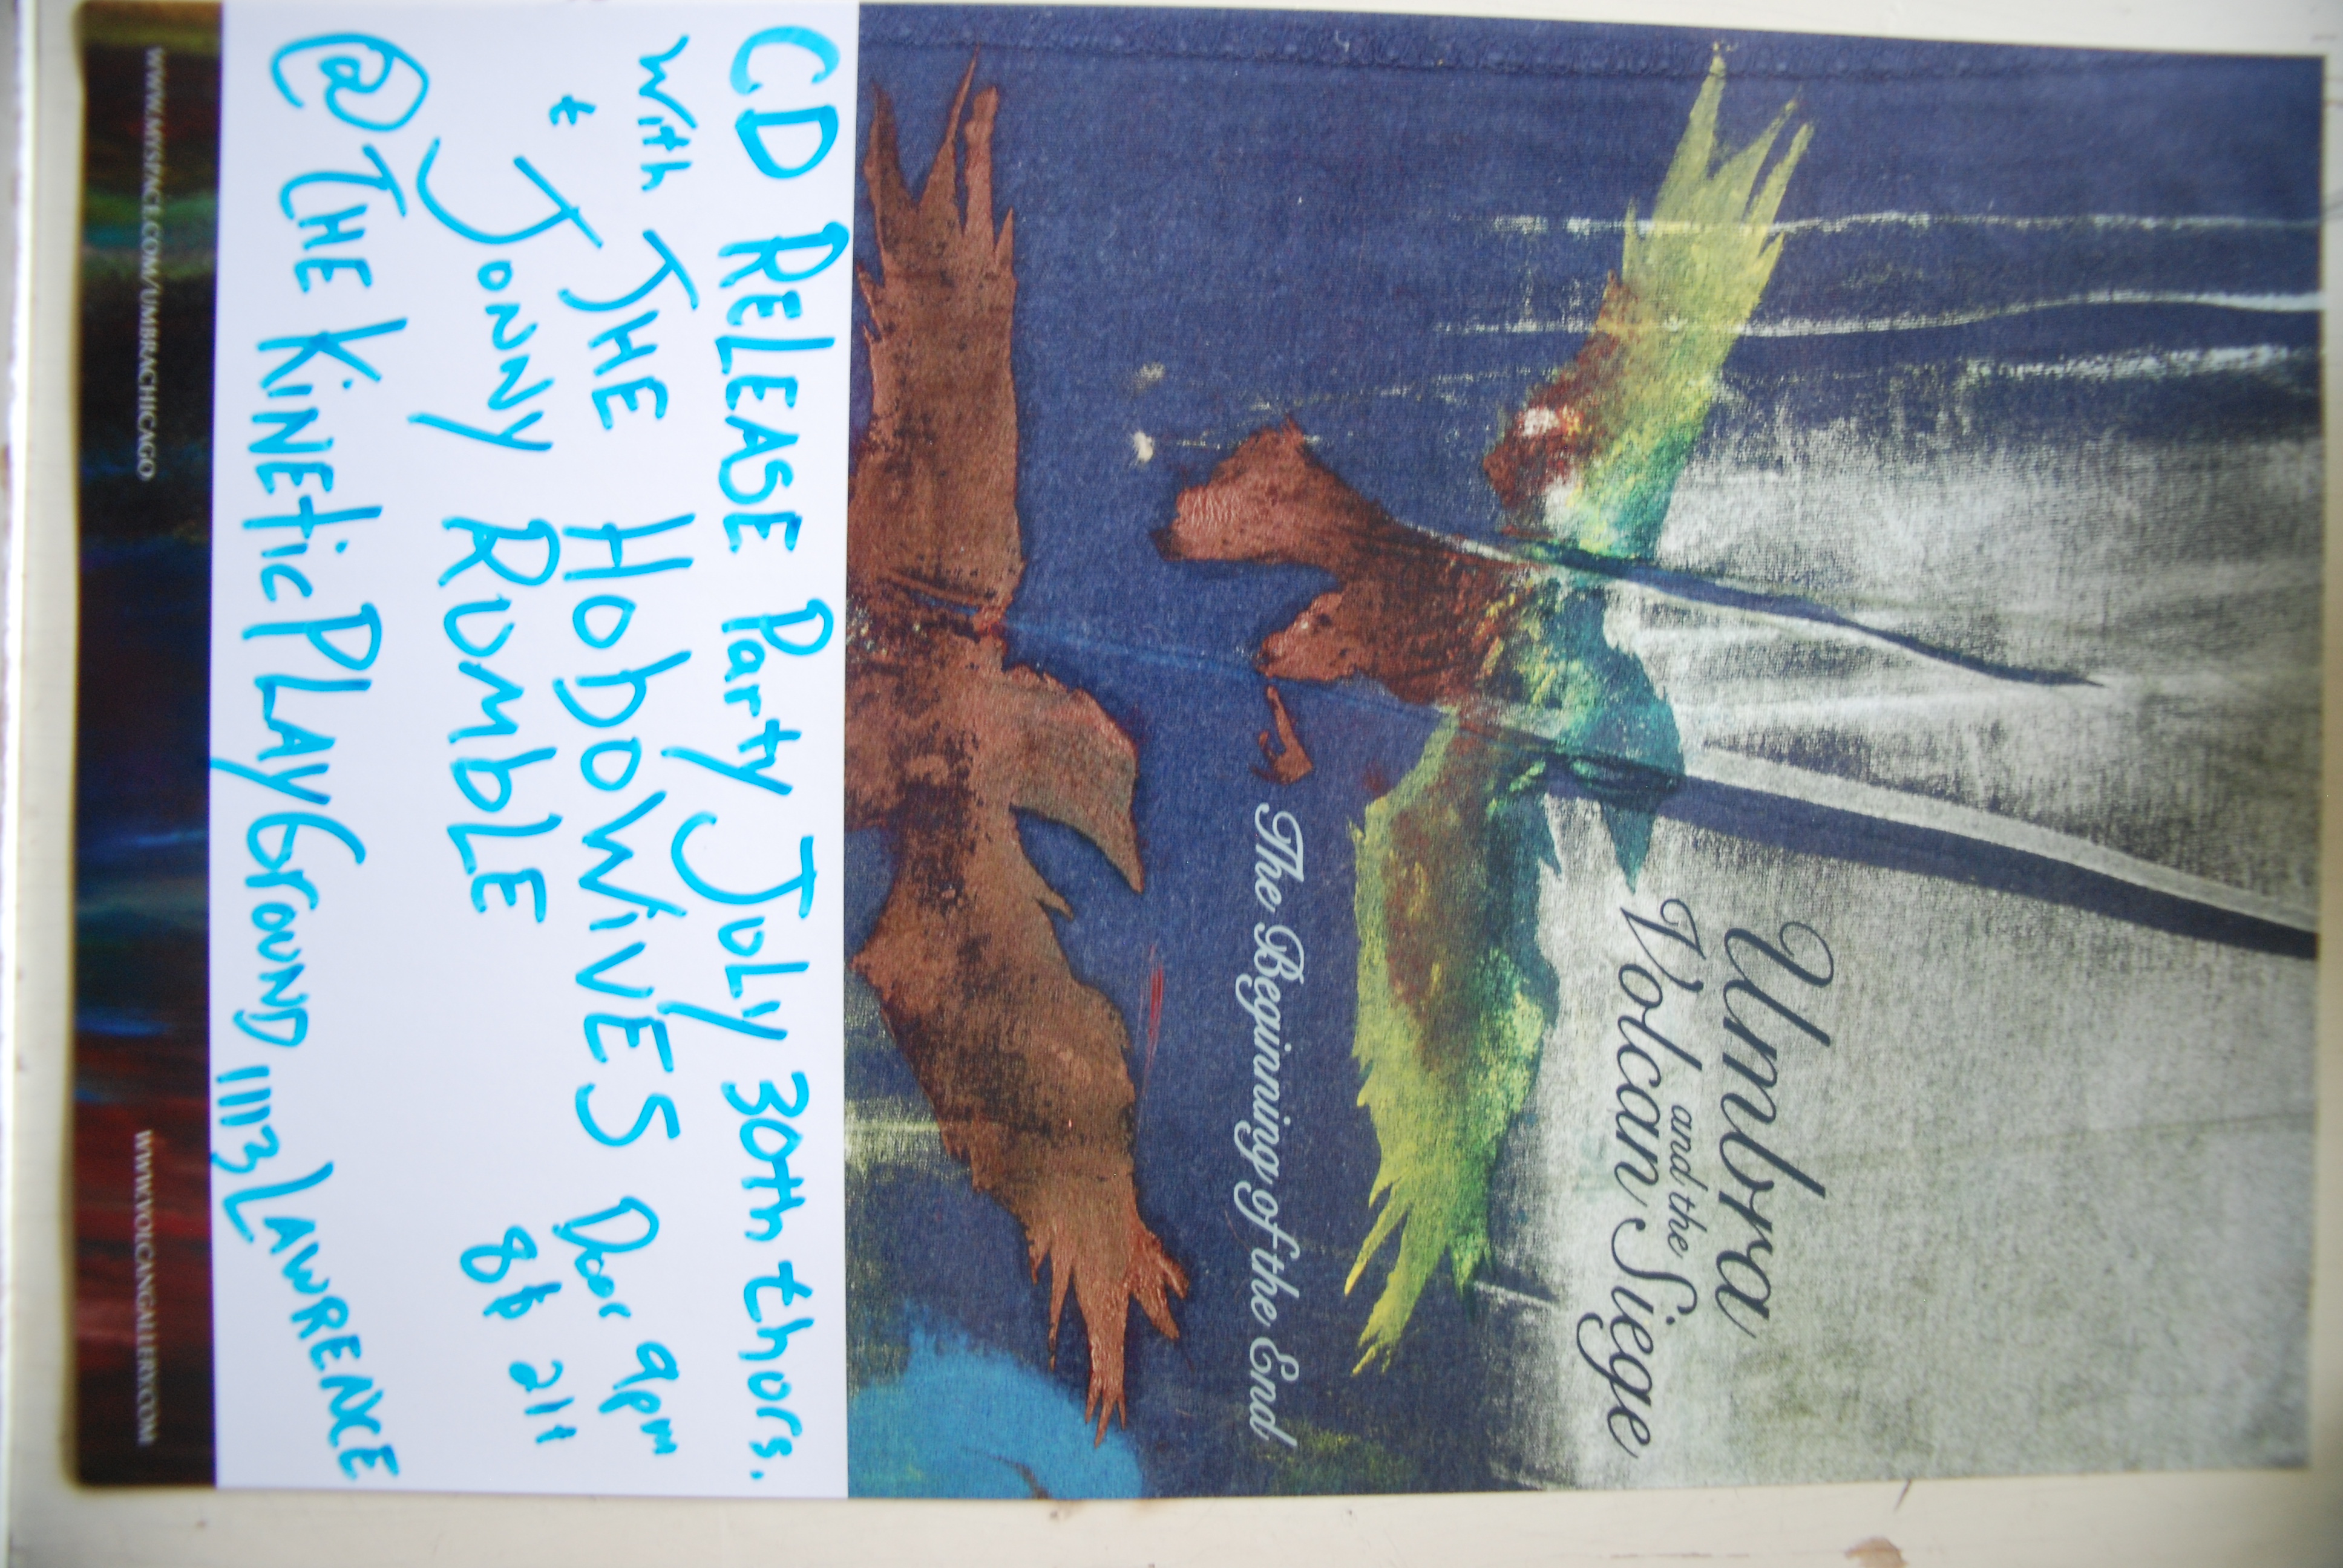 Umbra
and the
Volcan Siege
The Beginning of the End
CD ReLEASE Party JuLy 30th thurs.
with THE HoboWiVES Door 9pm
& JONNY RumbLE 8$ 21+
@ THE KiNEtic PLAyGrouND 1113 LAWRENCE
WWW.MYSPACE.COM/UMBRACHICAGO WWW.VOLCANGALLERY.COM